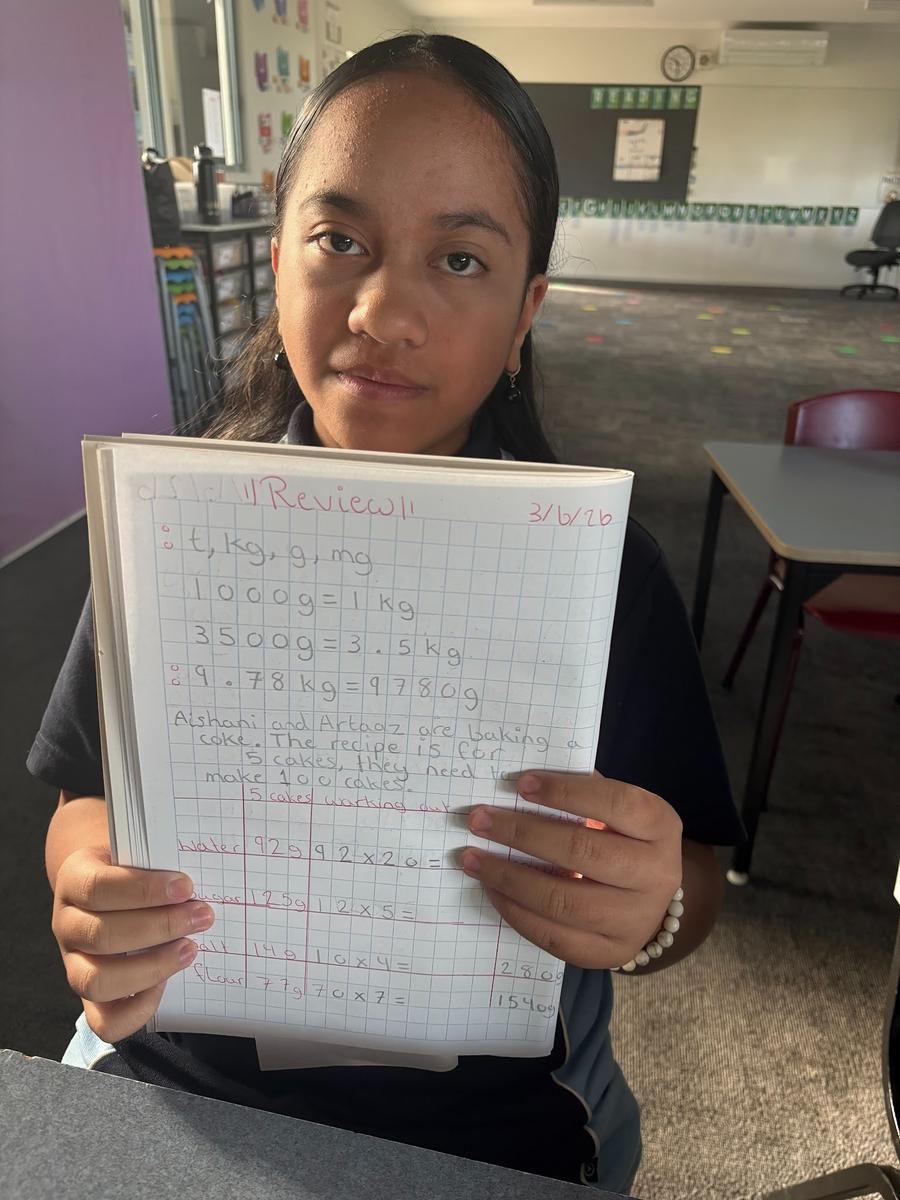 "Review"
3/6/26
: t, kg, g, mg
1000g = 1 kg
3500g = 3.5kg
: 9.78kg = 9780g
Aishani and Artaaz are baking a
coke. The recipe is for
5 cakes, they need to
make 100 cakes.
5 cakes working out
Water 92g 92x20=
Sugar 125g 12x5=
Salt 14g 10x4= 280g
flour 77g 70x7= 1540g